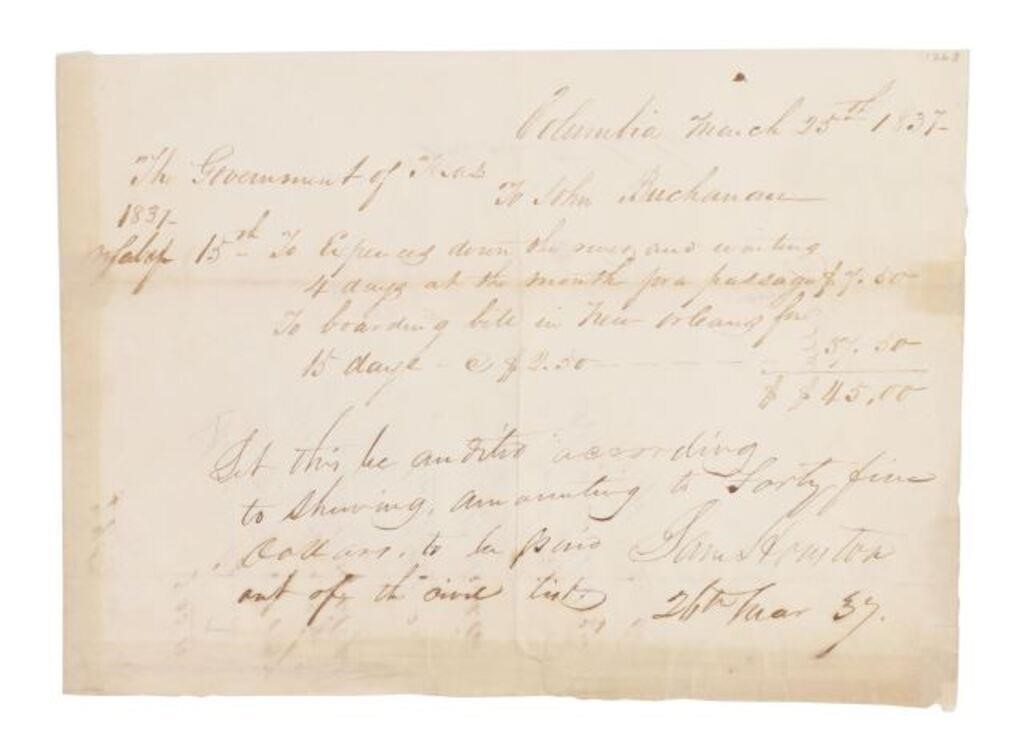 Columbia March 25th 1837
The Government of Texas
To John Buchanan
1837
15th To Expences down the river and waiting
4 days at the mouth for a passage $7.50
To boarding bill in New Orleans for
15 days - @ $2.50 37.50
$ $45.00
Let this be audited according
to shewing, amounting to Forty five
Dollars, to be paid Sam Houston
out of the civil list. 26th Mar 37.